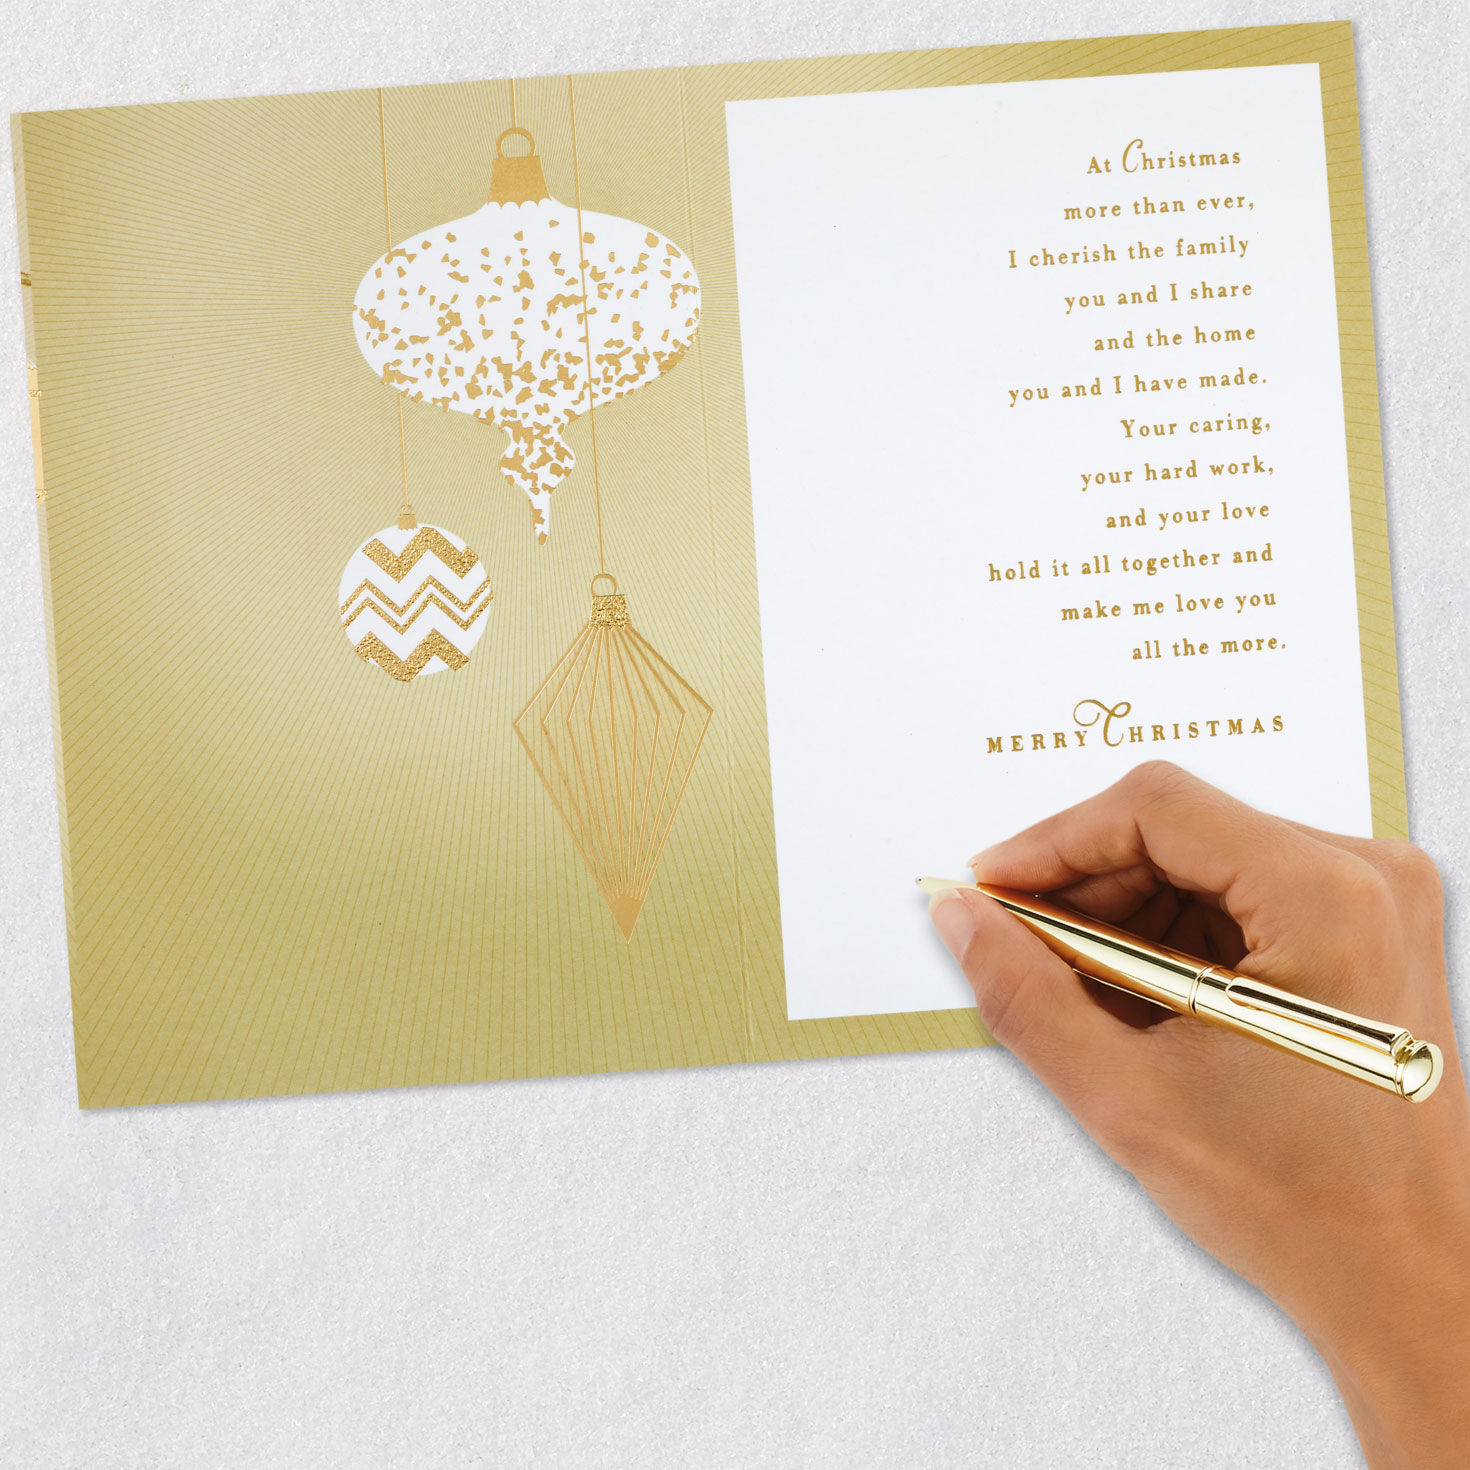 At Christmas
more than ever,
I cherish the family
you and I share
and the home
you and I have made.
Your caring,
your hard work,
and your love
hold it all together and
make me love you
all the more.
MERRY CHRISTMAS